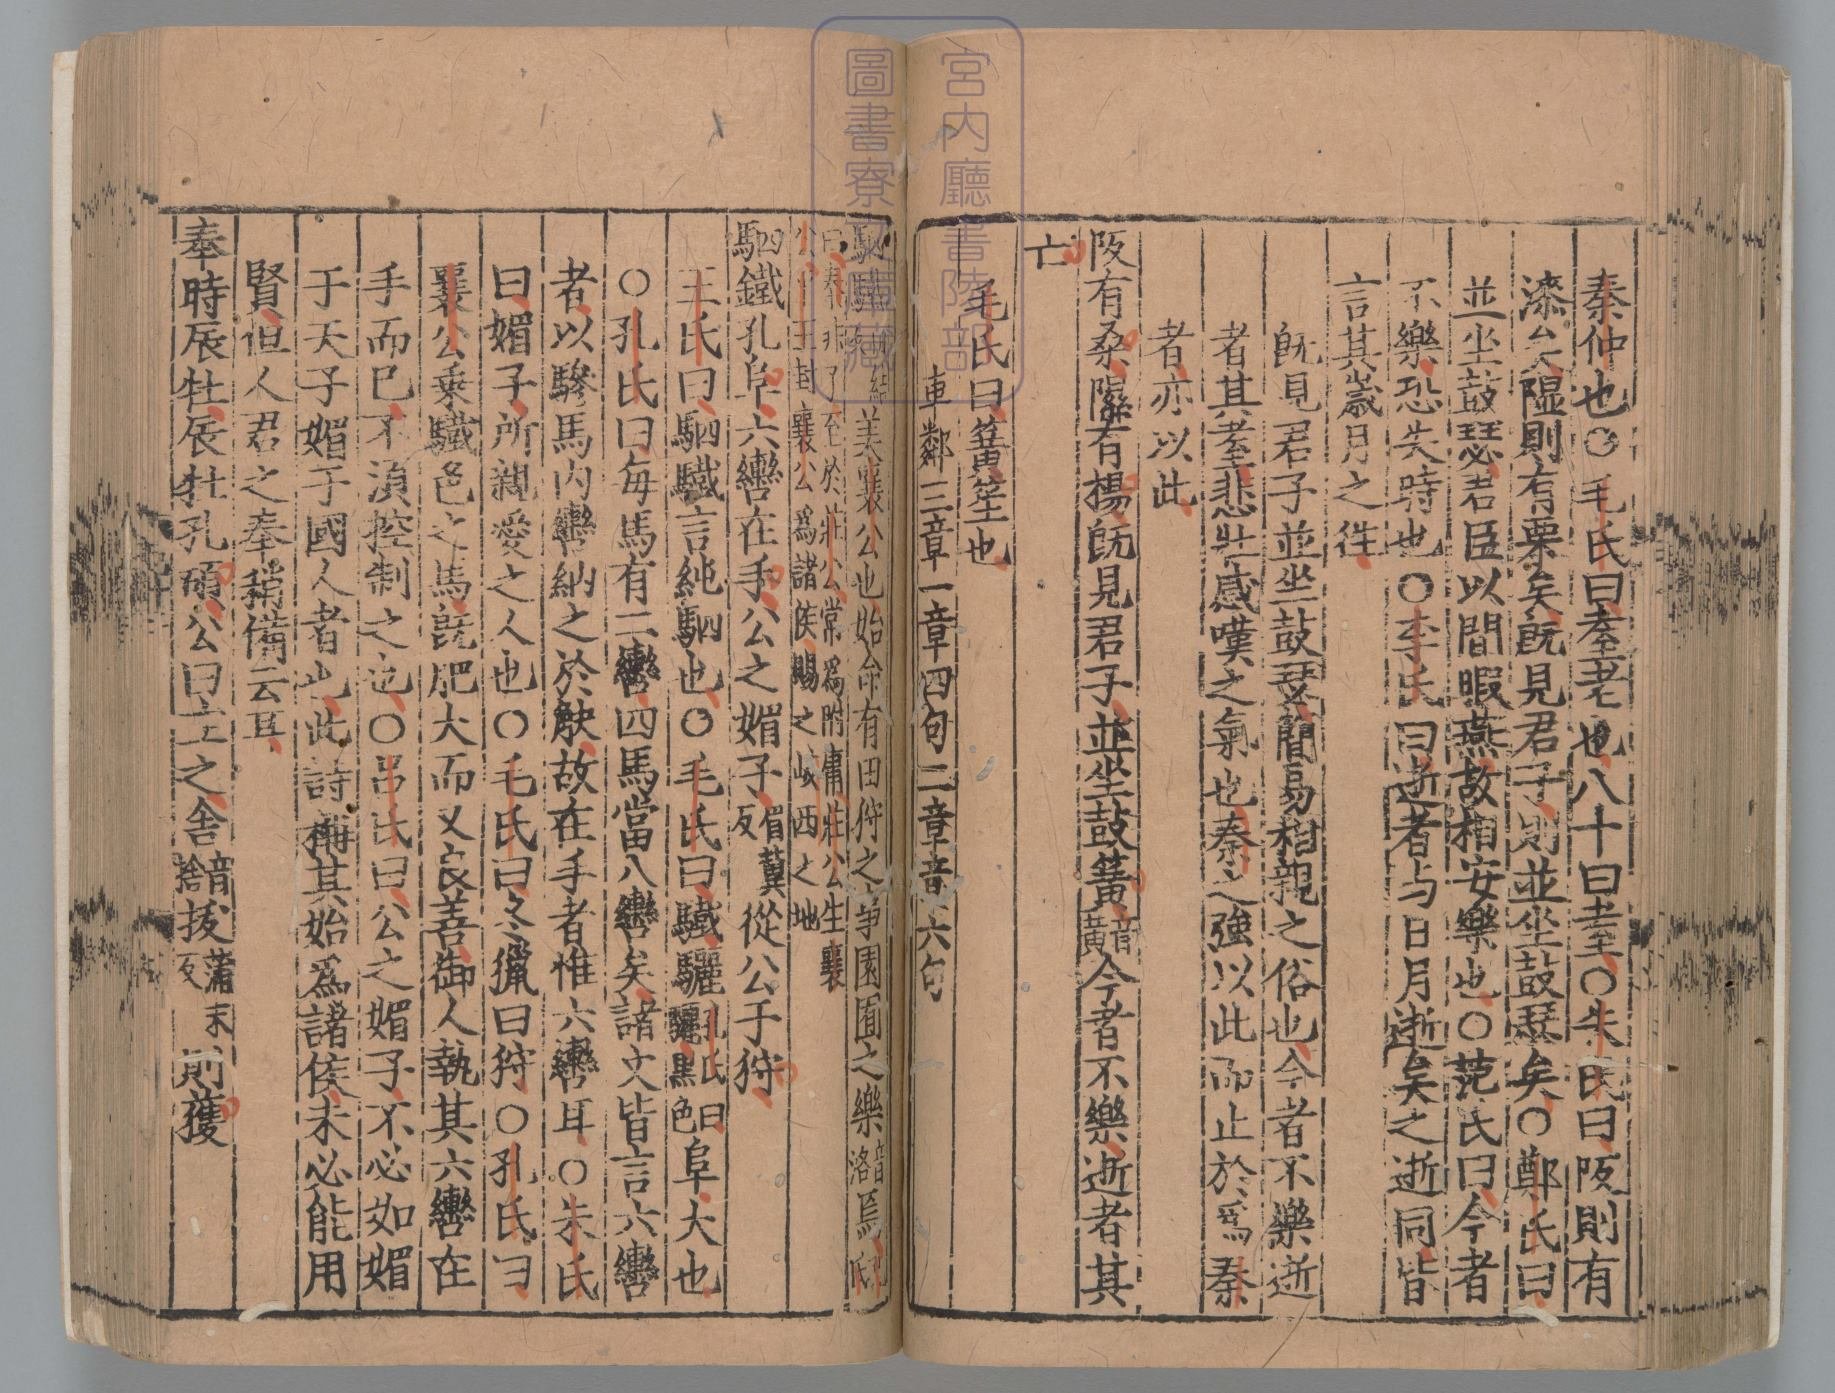 秦仲也○毛氏曰耋老也八十曰耋○朱氏曰阪則有
漆矣隰則有栗矣旣見君子則並坐鼓瑟矣○鄭氏曰
並坐鼓瑟君臣以閒暇燕故相安樂也○范氏曰今者
不樂恐失時也○李氏曰逝者与日月逝矣之逝同皆
言其歲月之徃
旣見君子並坐鼓瑟簡易相親之俗也今者不樂逝
者其耋悲壯感嘆之氣也秦之強以此而止於爲秦
者亦以此
阪有桑隰有楊旣見君子並坐鼓簧音黃今者不樂逝者其
亡
毛氏曰簧笙也
車鄰三章一章四句二章章六句
駟驖結美襄公也始命有田狩之事園囿之樂音洛焉
曰秦非子至於莊公常爲附庸莊公生襄
公平王封襄公爲諸侯賜之岐西之地
駟鐵孔阜六轡在手公之媚子眉冀反從公于狩
王氏曰駟驖言純駟也○毛氏曰驖驪孔氏曰驪黑色阜大也
○孔氏曰毎馬有二轡四馬當八轡矣諸文皆言六轡
者以驂馬内轡納之於觖故在手者惟六轡耳○朱氏
曰媚子所親愛之人也○毛氏曰冬獵曰狩○孔氏曰
襄公乗驖色之馬旣肥大而又良善御人執其六轡在
手而巳不湏控制之也○呂氏曰公之媚子不必如媚
于天子媚于國人者也此詩稱其始爲諸侯未必能用
賢但人君之奉稍備云耳
奉時辰牡辰牡孔碩公曰左之舍音捨拔蒲末反則獲
宮内廳書陵部
圖書寮文庫藏